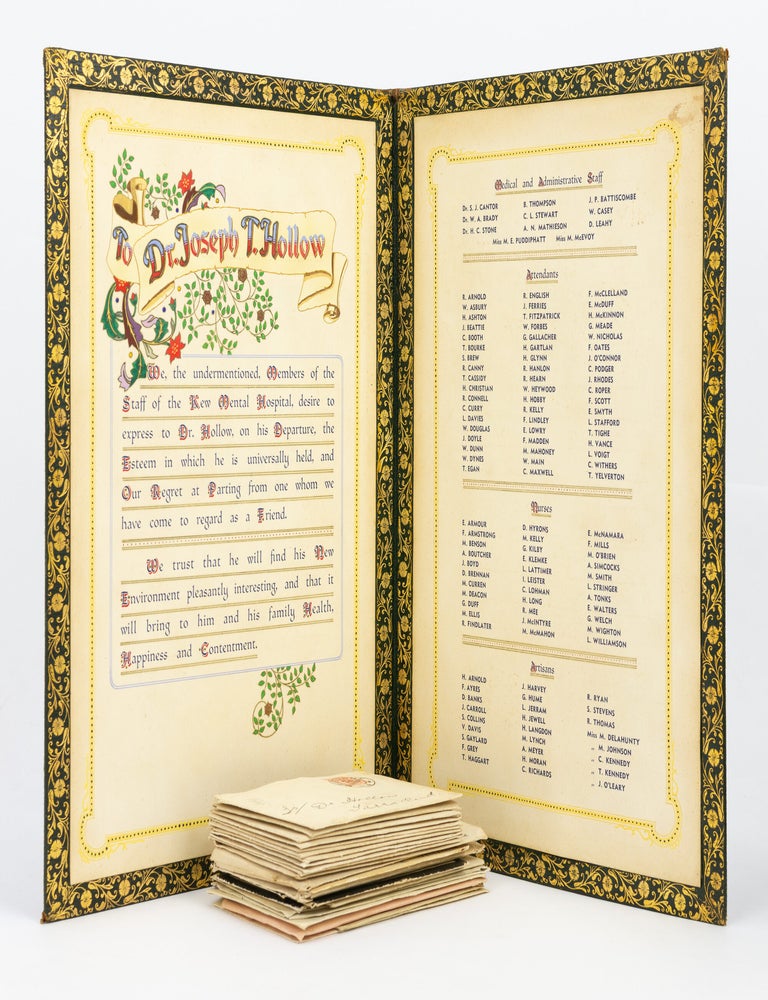 To Dr. Joseph T. Hollow
We, the undermentioned, Members of the
Staff of the Kew Mental Hospital, desire to
express to Dr. Hollow, on his Departure, the
Esteem in which he is universally held, and
Our Regret at Parting from one whom we
have come to regard as a Friend.
We trust that he will find his New
Environment pleasantly interesting, and that it
will bring to him and his family Health,
Happiness and Contentment.
Medical and Administrative Staff
Dr. S. J. CANTOR B. THOMPSON J. P. BATTISCOMBE
Dr. W. A. BRADY C. L. STEWART W. CASEY
Dr. H. C. STONE A. N. MATHIESON D. LEAHY
Miss M. E. PUDDIPHATT Miss M. McEVOY
Attendants
R. ARNOLD R. ENGLISH F. McCLELLAND
W. ASBURY J. FERRIES E. McDUFF
H. ASHTON T. FITZPATRICK H. McKINNON
J. BEATTIE W. FORBES G. MEADE
C. BOOTH G. GALLACHER W. NICHOLAS
T. BOURKE H. GARTLAN F. OATES
S. BREW H. GLYNN J. O'CONNOR
R. CANNY R. HANLON C. PODGER
T. CASSIDY R. HEARN J. RHODES
H. CHRISTIAN W. HEYWOOD C. ROPER
R. CONNELL H. HOBBY F. SCOTT
C. CURRY R. KELLY E. SMYTH
L. DAVIES F. LINDLEY L. STAFFORD
W. DOUGLAS E. LOWRY T. TIGHE
J. DOYLE F. MADDEN H. VANCE
W. DUNN M. MAHONEY L. VOIGT
W. DYNES W. MAIN C. WITHERS
T. EGAN C. MAXWELL T. YELVERTON
Nurses
E. ARMOUR D. HYRONS E. McNAMARA
F. ARMSTRONG M. KELLY F. MILLS
M. BENSON G. KILBY M. O'BRIEN
A. BOUTCHER E. KLEMKE A. SIMCOCKS
J. BOYD L. LATTIMER M. SMITH
D. BRENNAN I. LEISTER L. STRINGER
M. CURREN C. LOHMAN A. TONKS
M. DEACON H. LONG E. WALTERS
G. DUFF R. MEE G. WELCH
M. ELLIS J. McINTYRE M. WIGHTON
R. FINDLATER M. McMAHON L. WILLIAMSON
Artisans
H. ARNOLD J. HARVEY R. RYAN
F. AYRES G. HUME S. STEVENS
D. BANKS L. JERRAM R. THOMAS
J. CARROLL H. JEWELL Miss M. DELAHUNTY
S. COLLINS H. LANGDON „ M. JOHNSON
V. DAVIS M. LYNCH „ C. KENNEDY
S. GAYLARD A. MEYER „ T. KENNEDY
F. GREY H. MORAN „ J. O'LEARY
T. HAGGART C. RICHARDS
Dr Hollow